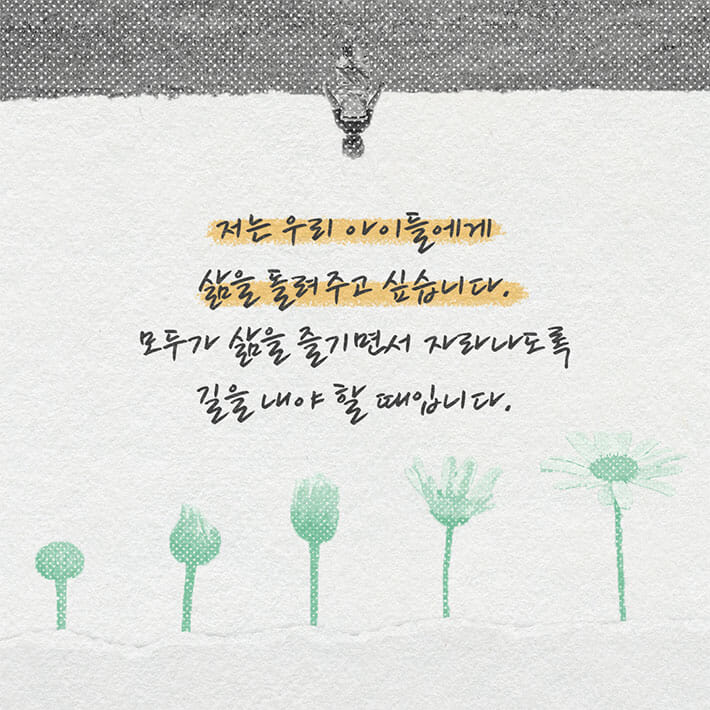 저는 우리 아이들에게
삶을 돌려주고 싶습니다.
모두가 삶을 즐기면서 자라나도록
길을 내야 할 때입니다.